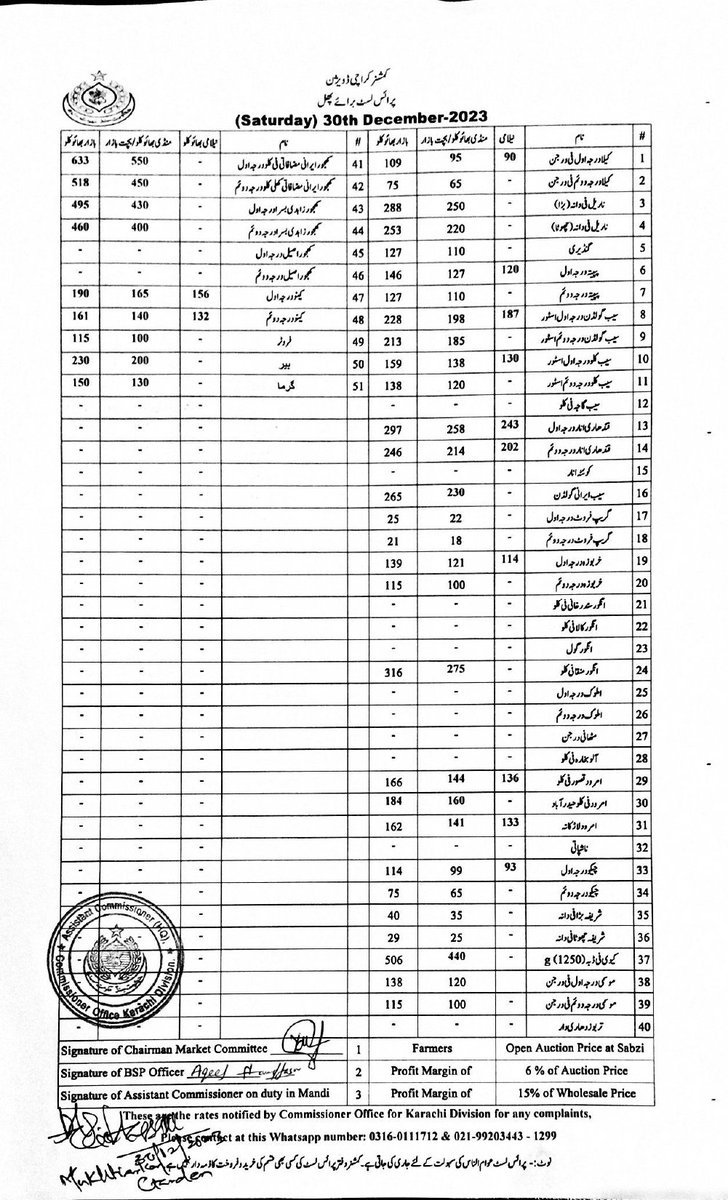 کمشنر کراچی ڈویژن
پرائس لسٹ برائے پھل
(Saturday) 30th December-2023
# نام نیلامی منڈی بھاؤ کلو/بچت بازار بازار بھاؤ کلو # نام نیلامی بھاؤ کلو منڈی بھاؤ کلو/بچت بازار بازار بھاؤ کلو
1 کیلا درجہ اول فی درجن 90 95 109 41 کھجور ایرانی مضافاتی فی کلو درجہ اول - 550 633
2 کیلا درجہ دوئم فی درجن - 65 75 42 کھجور ایرانی مضافاتی کھلی کلو درجہ دوئم - 450 518
3 ناریل فی دانہ (بڑا) - 250 288 43 کھجور زاہدی بسرا درجہ اول - 430 495
4 ناریل فی دانہ (چھوٹا) - 220 253 44 کھجور زاہدی بسرا درجہ دوئم - 400 460
5 گنڈیری - 110 127 45 کھجور اصیل درجہ اول - - -
6 پپیتہ درجہ اول 120 127 146 46 کھجور اصیل درجہ دوئم - - -
7 پپیتہ درجہ دوئم - 110 127 47 کینو درجہ اول 156 165 190
8 سیب گولڈن درجہ اول اسٹور 187 198 228 48 کینو درجہ دوئم 132 140 161
9 سیب گولڈن درجہ دوئم اسٹور - 185 213 49 فروٹر - 100 115
10 سیب کلو درجہ اول اسٹور 130 138 159 50 بیر - 200 230
11 سیب کلو درجہ دوئم اسٹور - 120 138 51 گرما - 130 150
12 سیب گاچہ فی کلو - - - - - -
13 قندھاری انار درجہ اول 243 258 297 - - -
14 قندھاری انار درجہ دوئم 202 214 246 - - -
15 کوئٹہ انار - - - - - -
16 سیب ایرانی گولڈن - 230 265 - - -
17 گریپ فروٹ درجہ اول - 22 25 - - -
18 گریپ فروٹ درجہ دوئم - 18 21 - - -
19 خربوزہ درجہ اول 114 121 139 - - -
20 خربوزہ درجہ دوئم - 100 115 - - -
21 انگور سندرخانی فی کلو - - - - - -
22 انگور کالا فی کلو - - - - - -
23 انگور گول - - - - - -
24 انگور منقافی کلو - 275 316 - - -
25 املوک درجہ اول - - - - - -
26 املوک درجہ دوئم - - - - - -
27 مٹھا فی درجن - - - - - -
28 آلو بخارہ فی کلو - - - - - -
29 امرود قصور فی کلو 136 144 166 - - -
30 امرود فی کلو حیدرآباد - 160 184 - - -
31 امرود لاڑکانہ 133 141 162 - - -
32 ناشپاتی - - - - - -
33 چیکو درجہ اول 93 99 114 - - -
34 چیکو درجہ دوئم - 65 75 - - -
35 شریفہ بڑا فی دانہ - 35 40 - - -
36 شریفہ چھوٹا فی دانہ - 25 29 - - -
37 کیوی فی ڈبہ (1250) g - 440 506 - - -
38 موسمی درجہ اول فی درجن - 120 138 - - -
39 موسمی درجہ دوئم فی درجن - 100 115 - - -
40 تربوز دھاری دار - - - - - -
Assistant Commissioner (HQ).
Commissioner Office Karachi Division.
Signature of Chairman Market Committee 1 Farmers Open Auction Price at Sabzi
Signature of BSP Officer Aqeel 2 Profit Margin of 6 % of Auction Price
Signature of Assistant Commissioner on duty in Mandi 3 Profit Margin of 15% of Wholesale Price
These are the rates notified by Commissioner Office for Karachi Division for any complaints,
Please contact at this Whatsapp number: 0316-0111712 & 021-99203443 - 1299
نوٹ:- پرائس لسٹ عوام الناس کی سہولت کے لئے جاری کی جاتی ہے۔ کمشنر دفتر پرائس لسٹ کی کسی بھی قسم کی خرید و فروخت کا ذمہ دار نہیں
30/12/2023
Mukhtiarkar